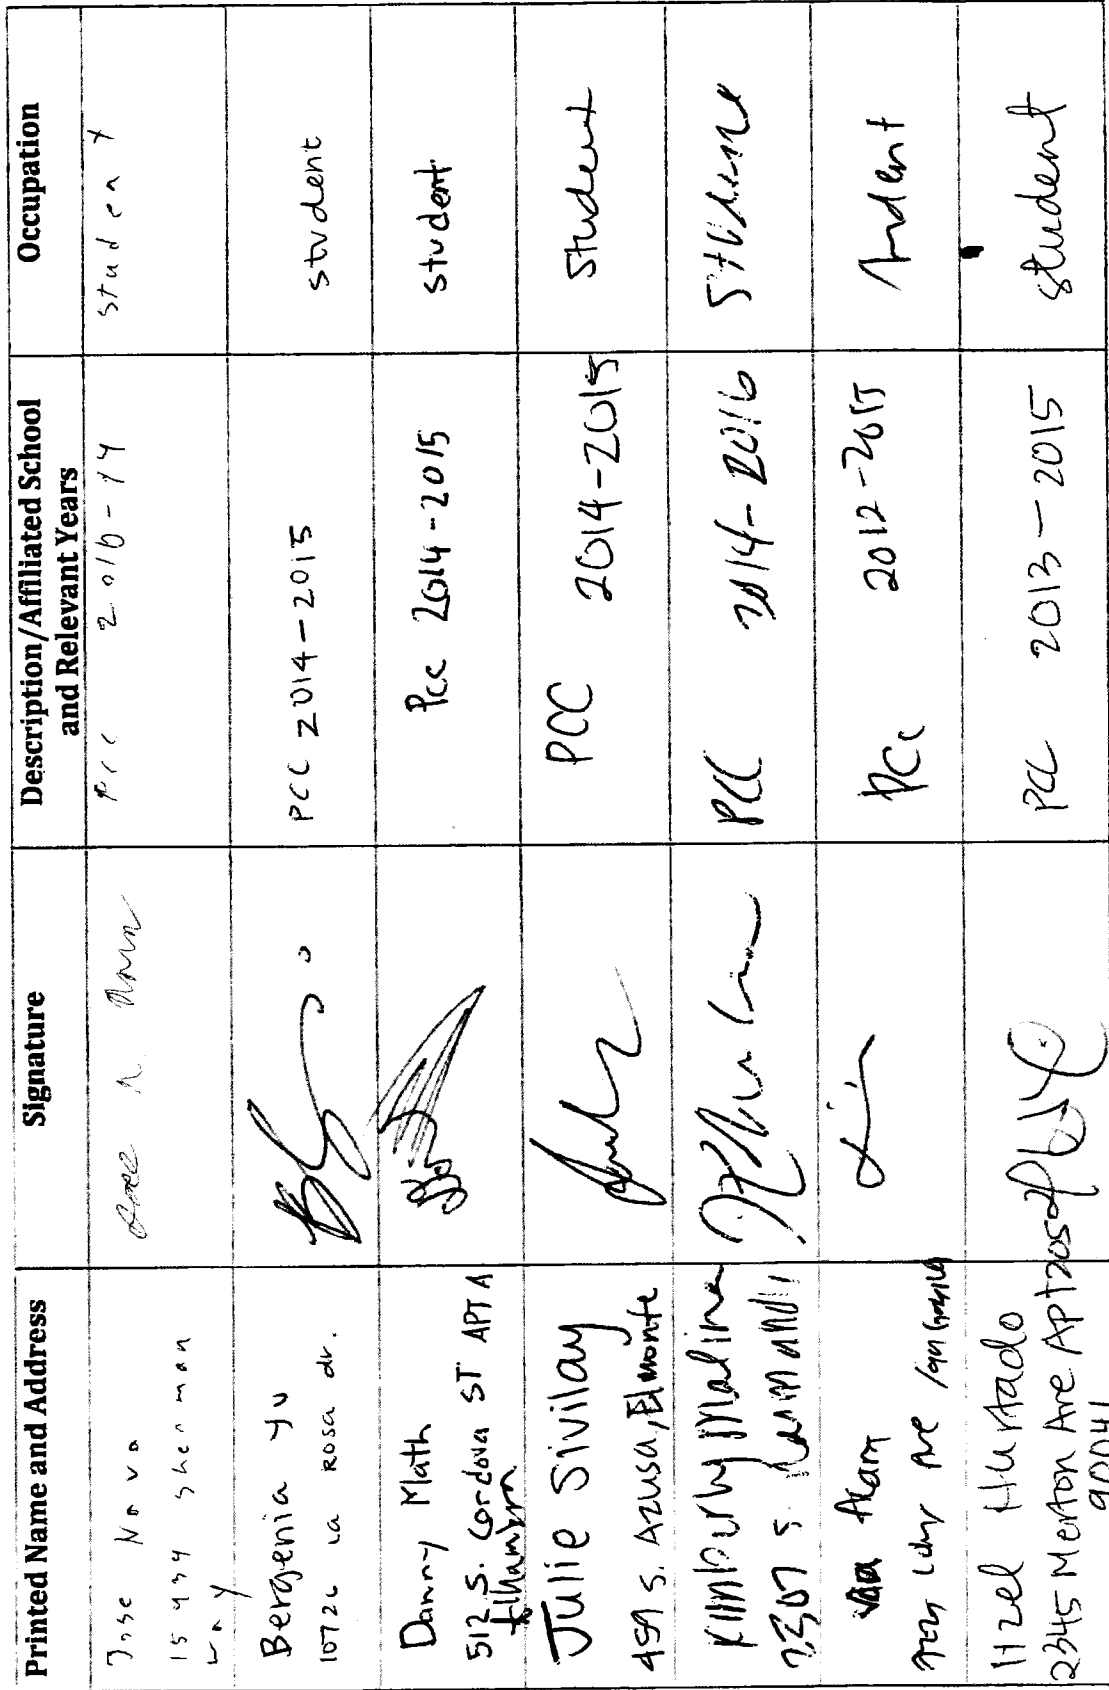 Printed Name and Address
Signature
Description/Affiliated School
and Relevant Years
Occupation
Jose Nova
15434 Sherman
way
Pcc 2010-14
student
Bergenia Yu
10726 La Rosa dr.
PCC 2014-2015
student
Danny Math
512 S. Cordova ST APT A
Alhambra
Pcc 2014-2015
student
Julie Sivilay
459 S. Azusa, El monte
PCC 2014-2015
Student
Kimburly Malina
2307 S.
PCC 2014-2016
Student
Alam
Ave
PCC 2012-2015
student
Itzel Hurtado
2345 Merton Ave APT 205
90041
PCC 2013-2015
student